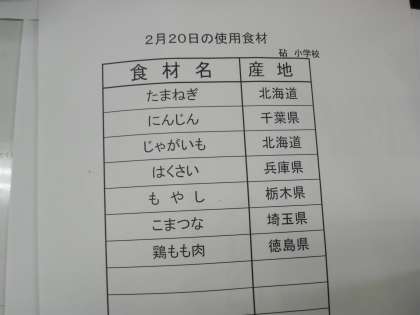 2月20日の使用食材
砧 小学校
食材名 産地
たまねぎ 北海道
にんじん 千葉県
じゃがいも 北海道
はくさい 兵庫県
もやし 栃木県
こまつな 埼玉県
鶏もも肉 徳島県